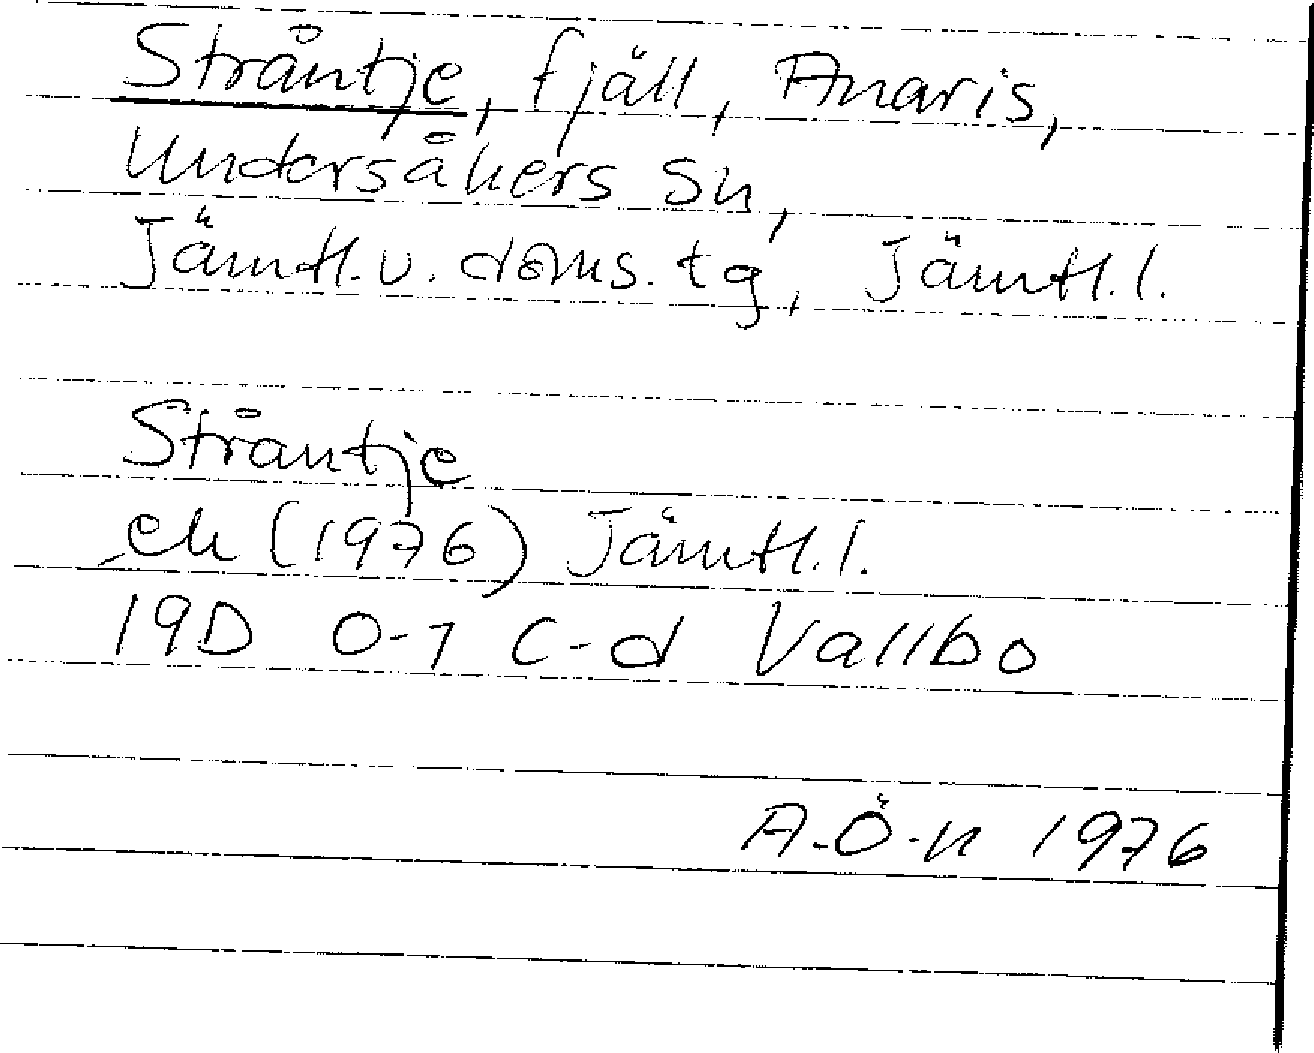 Stråntje, fjäll, Anaris,
Undersåkers sn,
Jämtl. v. doms. tg, Jämtl. l.
Stråntje
ek (1976) Jämtl. l.
19D 0-1 c-d Vallbo
A. Ö-n 1976